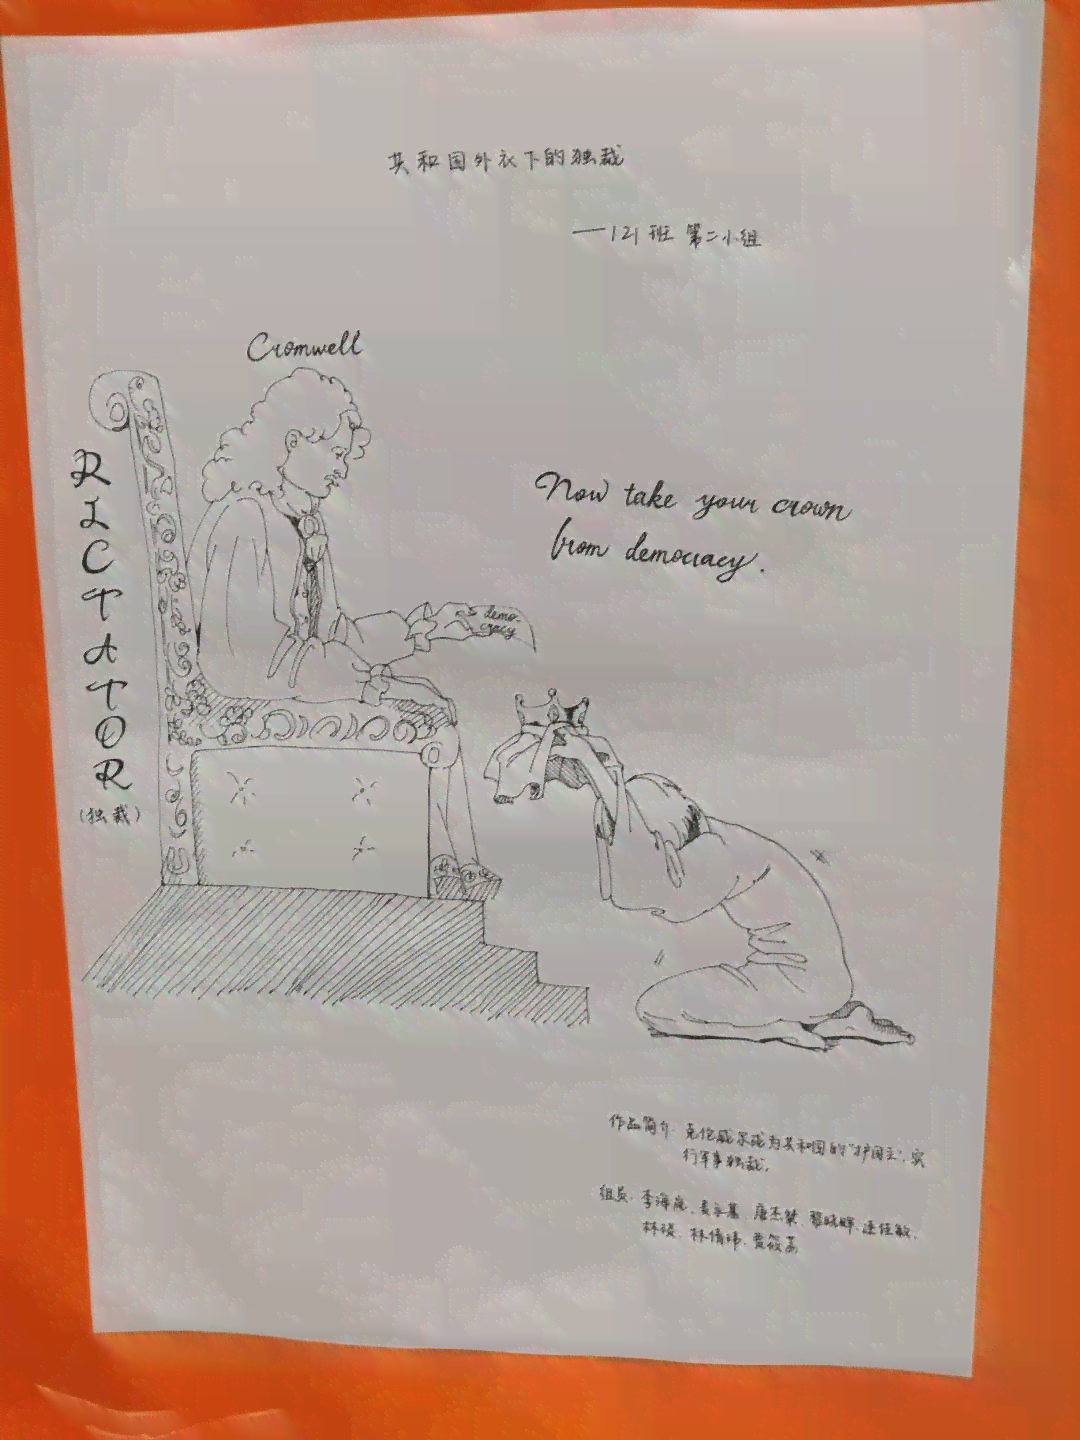 共和国外衣下的独裁
——121班 第二小组
Cromwell
RICTATOR
(独裁)
Now take your crown
from democracy.
demo-
cracy
作品简介: 克伦威尔成为共和国的"护国主", 实
行军事独裁.
组员: 李海岚、麦永基、唐杰燊、黎晓晖、连佳敏、
林琰、林倩玮、黄筱荔